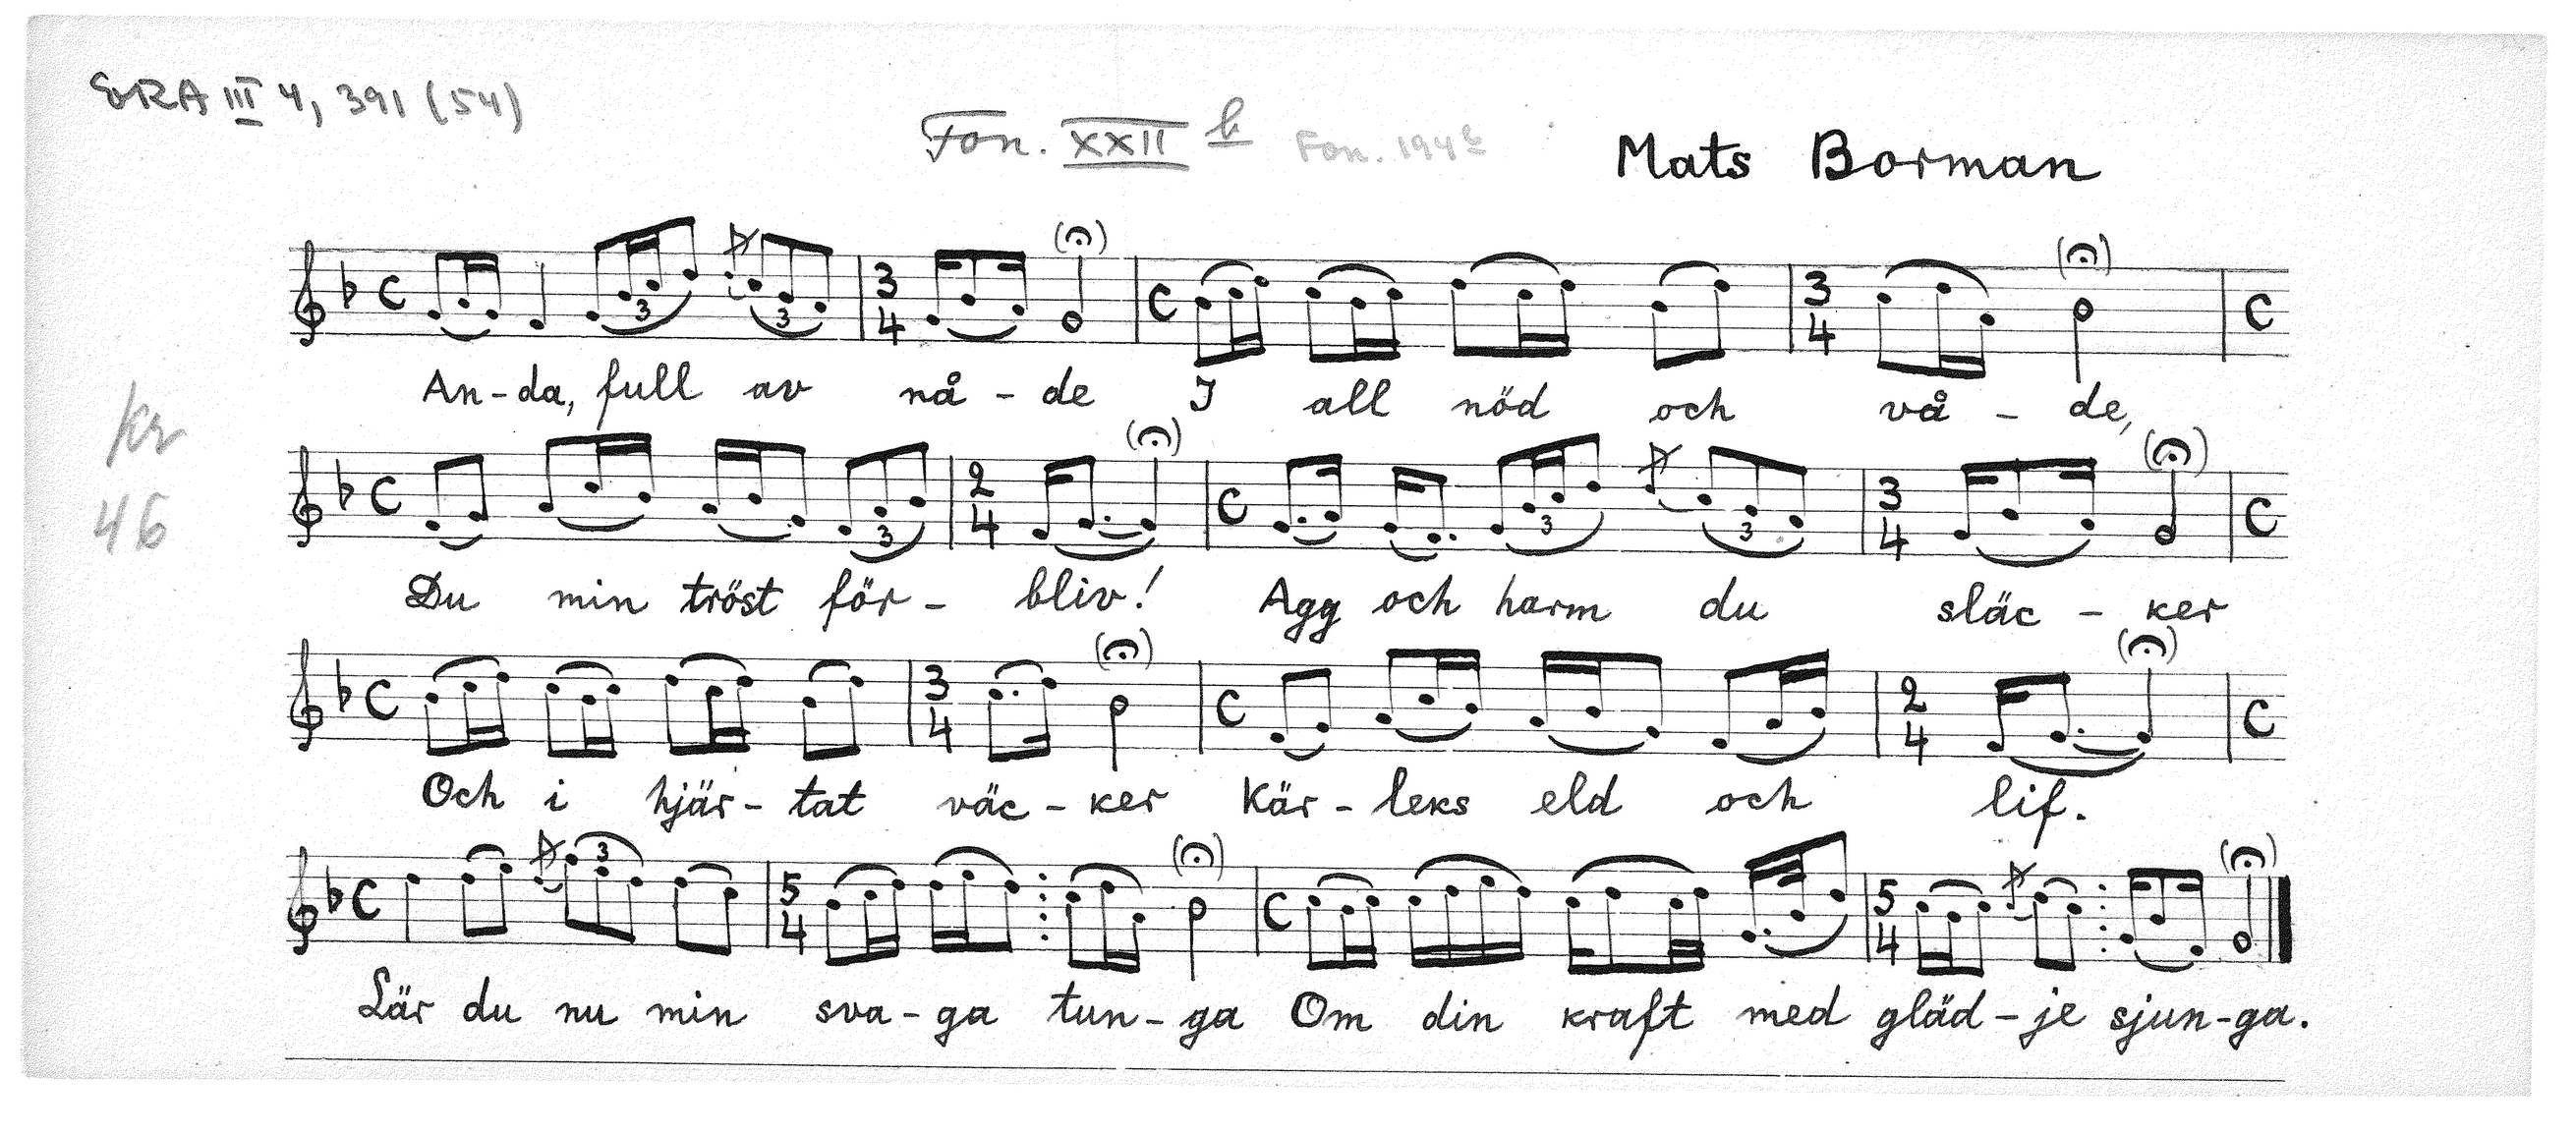 ERA III 4, 391 (54)
Fon. XXII b Fon. 194 b Mats Borman
An-da, full av nå - de I all nöd och vå - de,
kr
46
Du min tröst för - bliv! Agg och harm du släc - ker
Och i hjär - tat väc - ker Kär - leks eld och lif.
Lär du nu min sva - ga tun - ga Om din kraft med gläd - je sjun - ga.